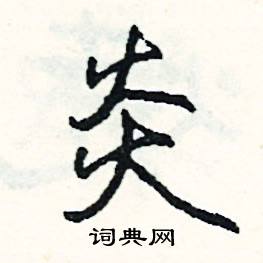 炎
词典网